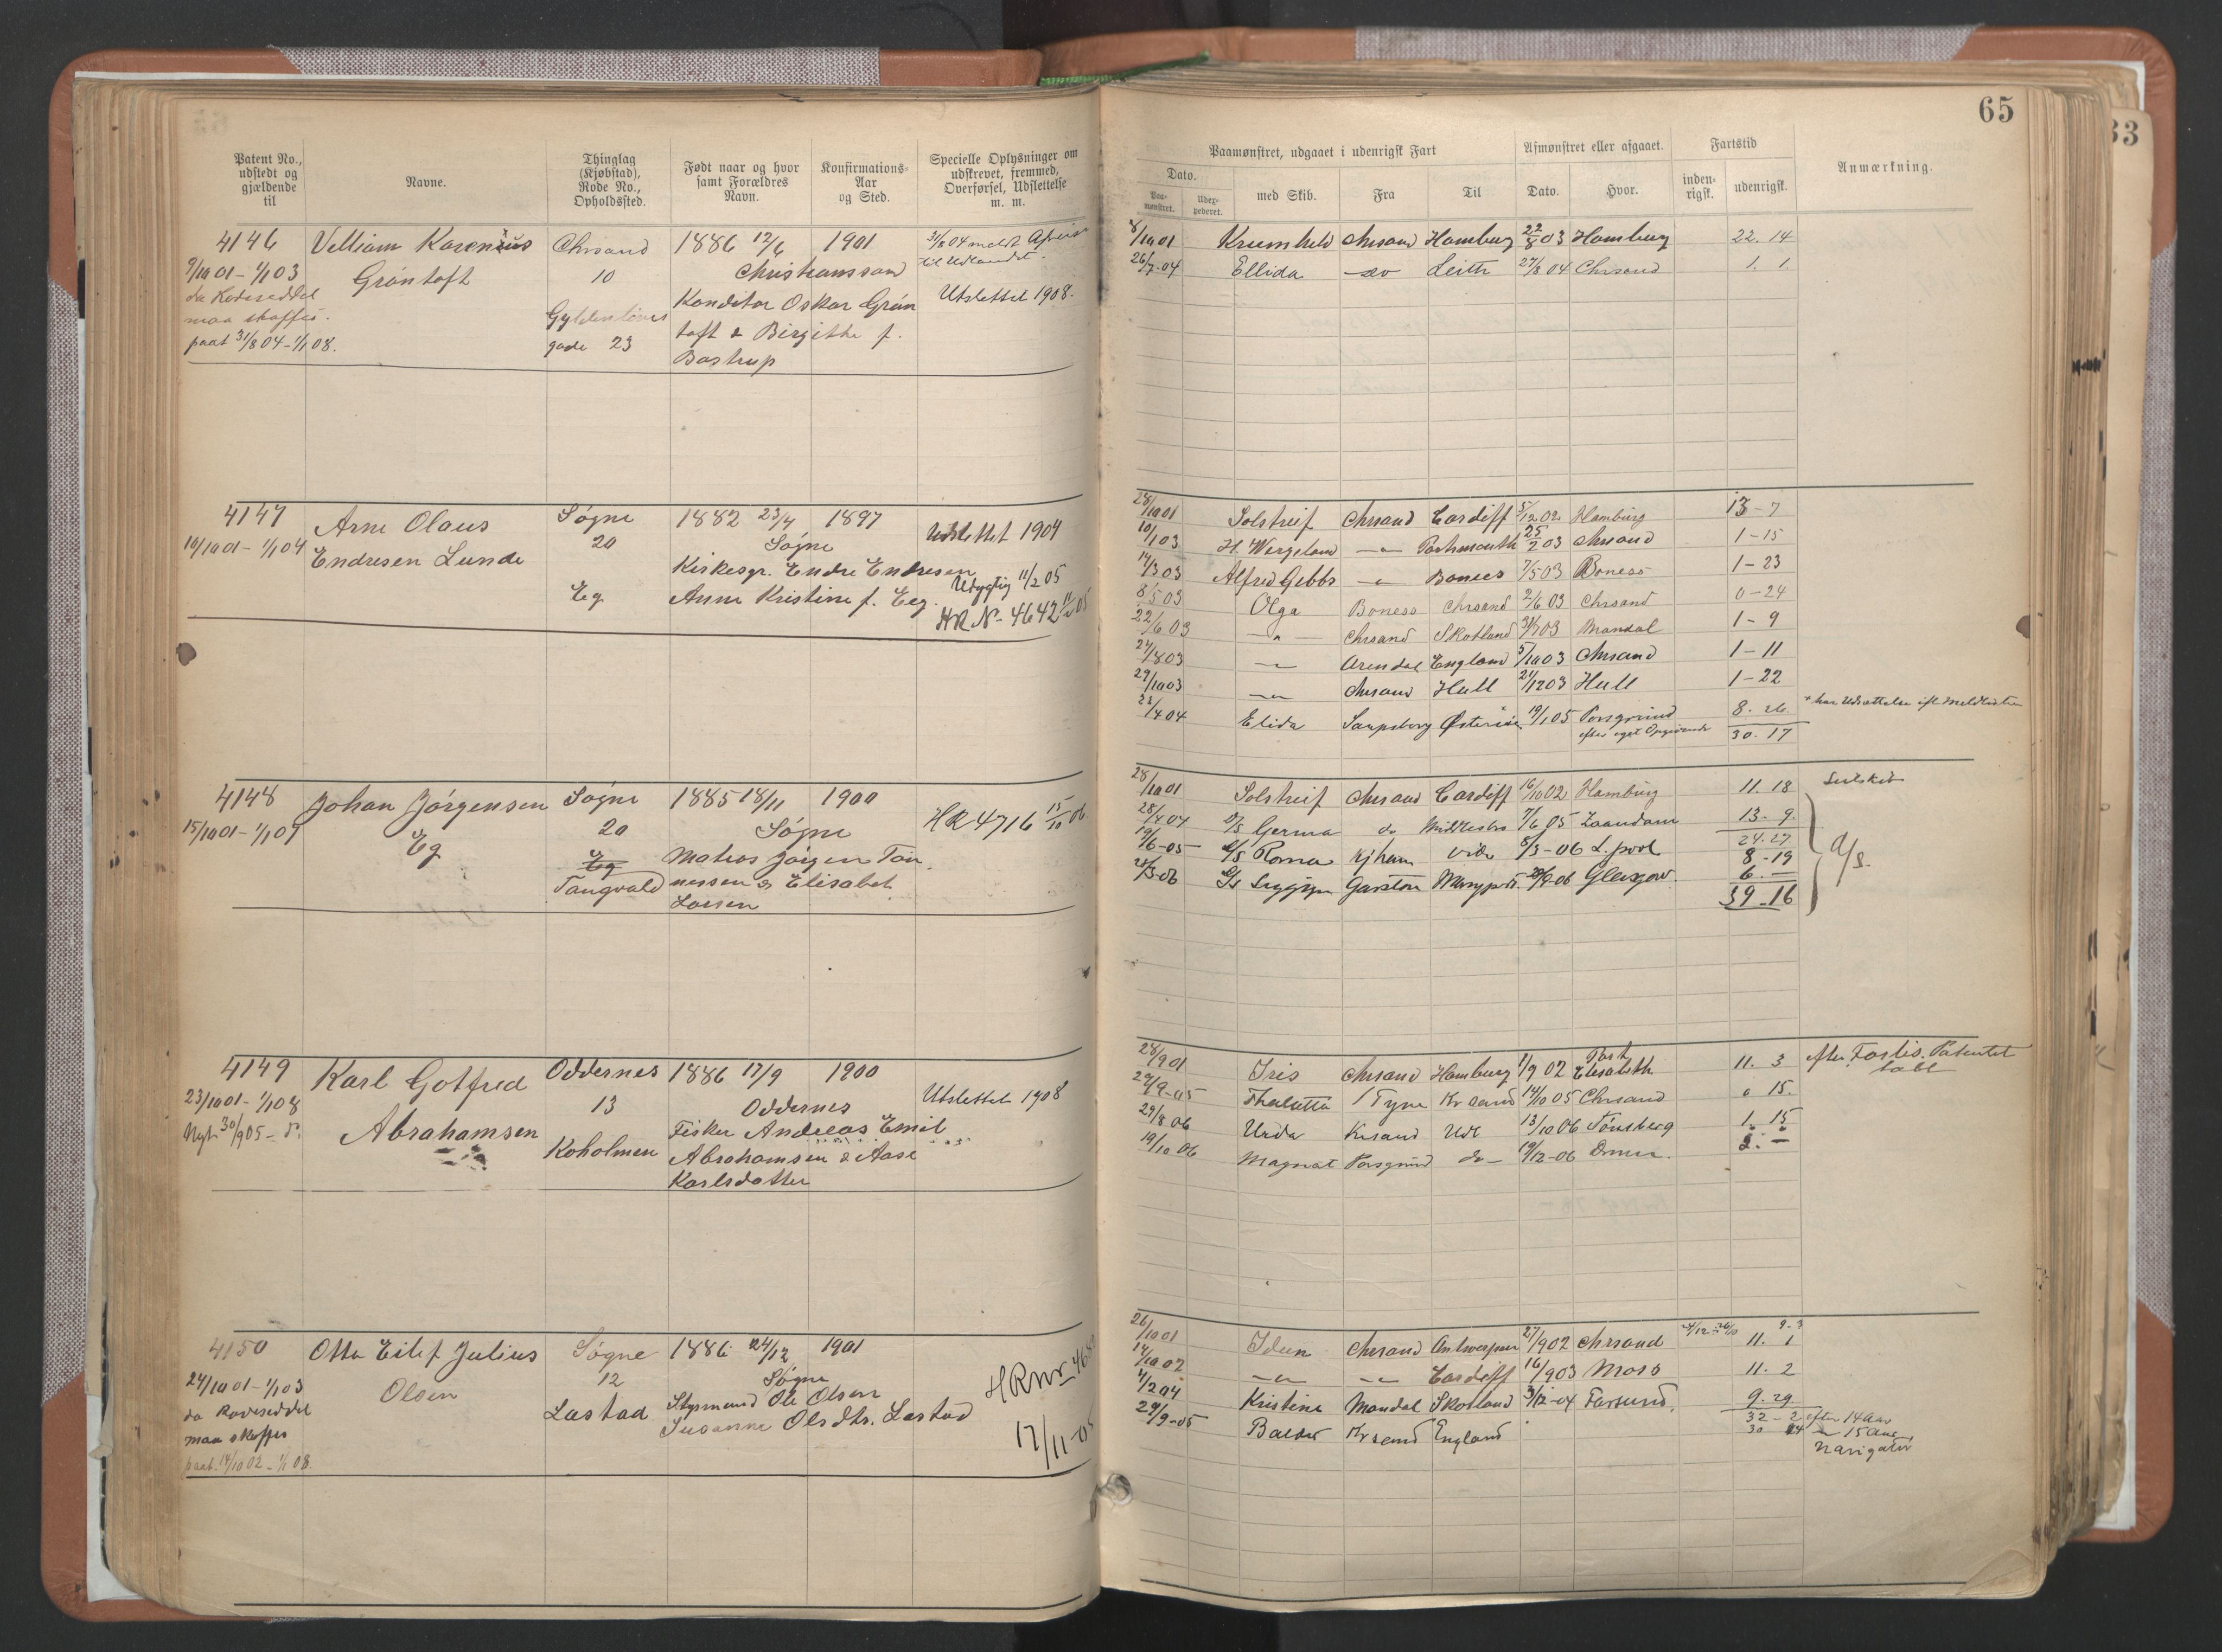 65
33
Patent No., udstedt og gjældende til
Navne.
Thinglag (Kjøbstad), Rode No., Opholdssted.
Født naar og hvor samt Forældres Navn.
Konfirmations-Aar og Sted.
Specielle Oplysninger om udskrevet, fremmed, Overførsel, Udslettelse m. m.
Paamønstret, udgaaet i udenrigsk Fart
Afmønstret eller afgaaet.
Fartstid
Anmærkning.
Dato.
Paa-mønstret.
Udex-pederet.
med Skib.
Fra
Til
Dato.
Hvor.
inden-rigsk.
udenrigsk.
4146 Velliam Karenius Chrsand 1886 12/6 1901
9/10 01 - 1/1 03 Gröntoft 10 Christianssand
do Rodeseddel
maa skaffes. Gyldenlöves Konditor Oskar Grön Utslettet 1908.
paat 31/8 04 - 1/1 08. gade 23 toft & Birgithe f.
Bastrup
4147 Arne Olaus Søgne 1882 23/4 1897 Udslettet 1904
10/10 01 - 1/1 04 Endresen Lunde 20 Søgne
Kirkesgr. Endre Endresen
Udygtig 11/2 05
Eg Anne Kristine f. Eeg.
HR No 4642
4148 Johan Jörgensen Søgne 1885 18/11 1900
15/10 01 - 1/1 07 Eg 20 Søgne HR 4716 15/10 06
Eg Matros Jörgen Tön
Tangvald nessen & Elisabet
Larsen
4149 Karl Gotfred Oddernes 1886 17/9 1900
23/10 01 - 1/1 08 13 Oddernes Utslettet 1908
Nyt 30/9 05 - Abrahamsen Fisker Andreas Emil
Koholmen Abrahamsen & Aase
Karlsdatter
4150 Otto Eilef Julius Søgne 1886 24/12 1901
24/10 01 - 1/1 03 Olsen 12 Søgne HR nr
do Rodeseddel Styrmand Ole Olsen
maa skaffes Lastad Susanne Olsdtr. Lastad
paat. 14/10 02 - 1/1 08. 17/11-05
Chrsand Hamburg 22/8 03 Hamburg 22. 14
26/7-04 Ellida Leith 27/8 04 Chrsand 1. 1.
28/10 01 Solstreif Chrsand Cardiff 5/12 02 Hamburg 13-7
10/1 03 H. Wergeland -"- Portsmouth 25/2 03 Chrsand 1-15
14/3 03 Alfred Gibbs -"- Boness 7/5 03 Boness 1-23
8/5 03 Olga Boness Chrsand 2/6 03 Chrsand 0-24
22/6 03 -"- Chrsand Skotland 31/7 03 Mandal 1-9
24/8 03 -"- Arendal England 5/10 03 Chrsand 1-11
29/10 03 -"- Chrsand Hull 21/12 03 Hull 1-22
Elida Sarpsborg 19/1 05 Porsgrund 8. 26
efter eget Opgivende 30. 17
28/10 01 Solstreif Chrsand Cardiff 16/10 02 Hamburg 11. 18 Seilskib
28/4 04 D/S Germa do Middlesbro 7/6 05 Zaandam 13-9.
24.27
19/6-05 D/S Roma Kjhavn 8/3-06 L.pool 8-19
Garston Glasgow. 6. -
39-16
28/9 01 Iris Chrsand Hamburg 1/9 02 Port Elisabeth 11. 3 efter Forlis. Patentet tabt
29/9-05 Thalatta Tyne Krsand 14/10 05 Chrsand 0 15.
29/8 06 Urda Krsand Udl 13/10 06 Tönsberg 1. 15
19/10 06 Magnat Porsgrund do 19/12-06 2. -
26/10 01 Idun Chrsand Antwerpen 27/9 02 Chrsand 11. 1
14/10 02 -"- -"- Cardiff 16/9 03 Moss 11. 2
4/2 04 Kristine Mandal Skotland 3/12-04 Farsund. 9. 29
29/9-05 Balder Krsand England 32-2 efter 14 Aar
30 24 -"- 15 Aar,
Navigatör